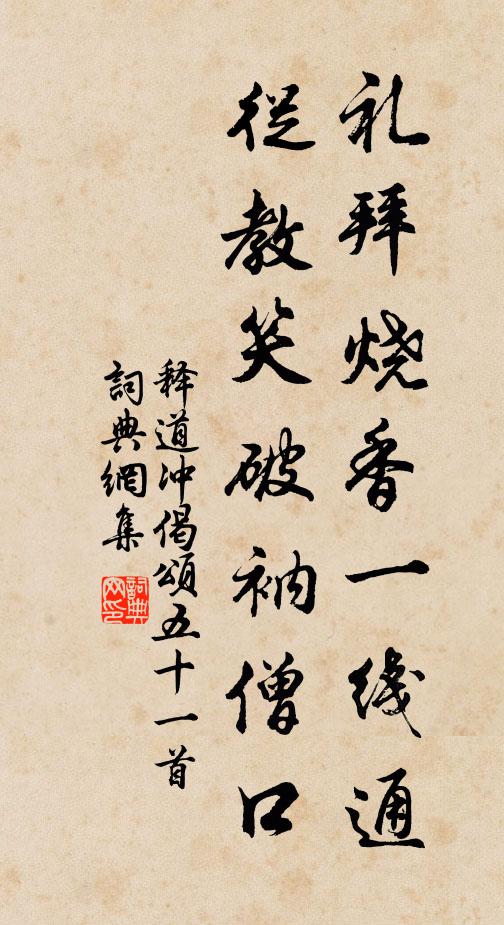 礼拜烧香一线通
从教笑破衲僧口
释道冲偈颂五十一首
词典网集
词典网印